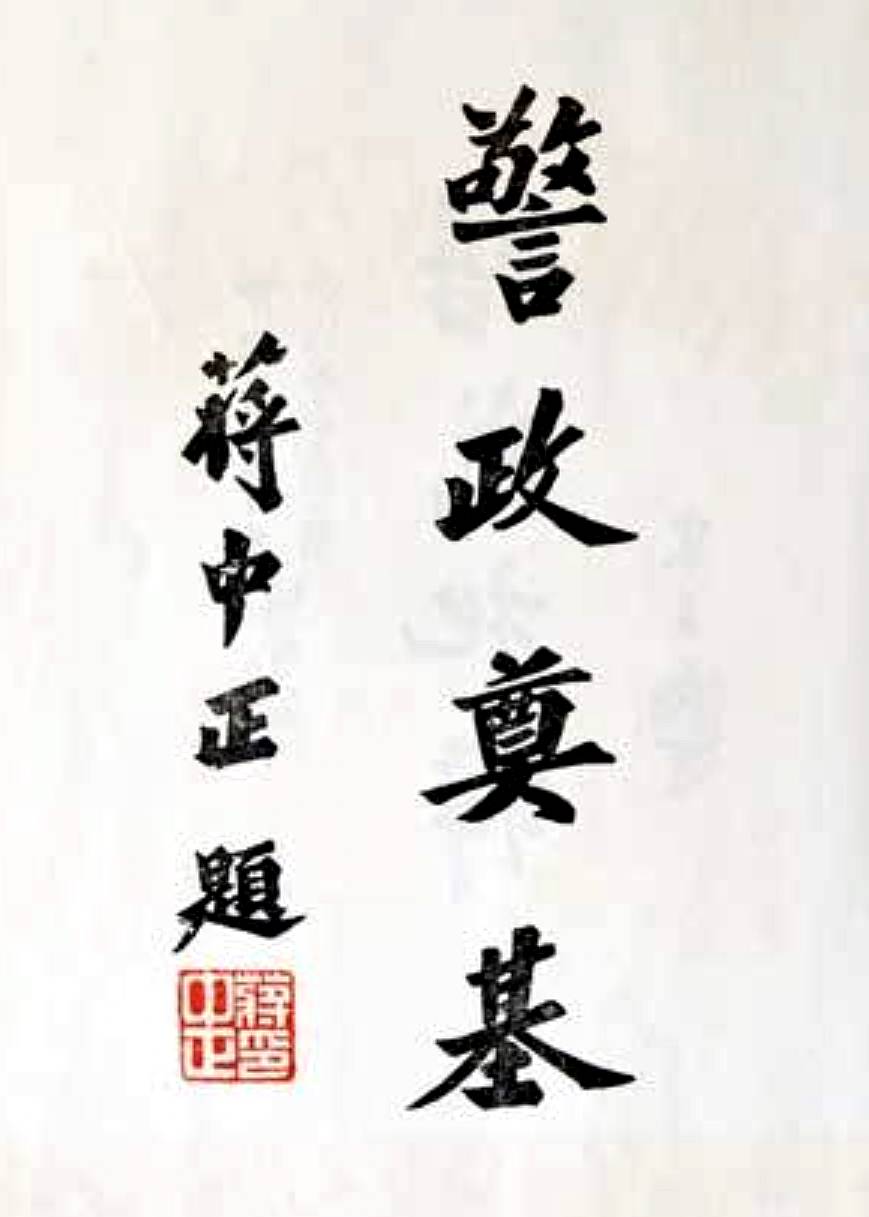 警政奠基
蔣中正題
蔣中正印